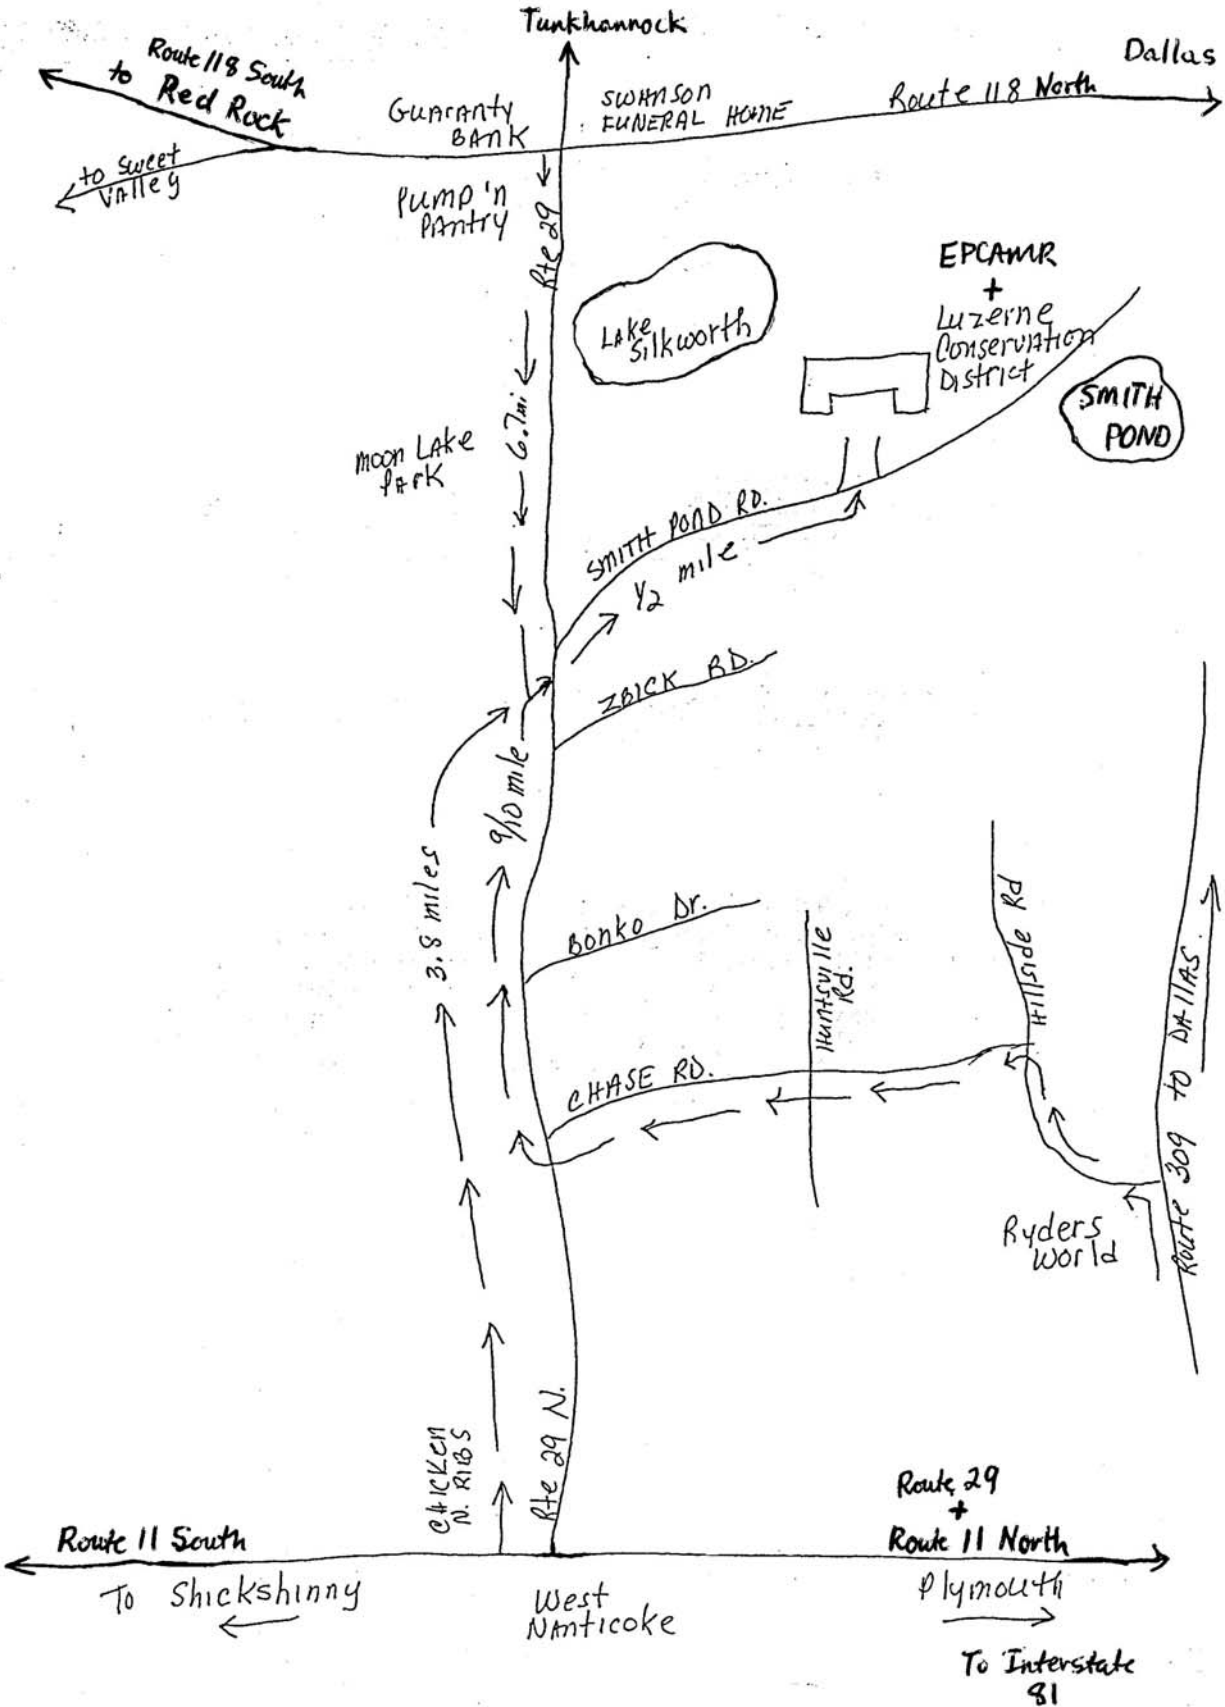 Tunkhannock
Route 118 South
to Red Rock
Dallas
GUARANTY
BANK
SWANSON
FUNERAL HOME
Route 118 North
to Sweet
Valley
Pump 'n
Pantry
Rte 29
EPCAMR
+
Luzerne
Conservation
District
Lake
Silkworth
SMITH
POND
6.7mi
Moon Lake
Park
SMITH POND RD.
1/2 mile
ZBICK RD.
9/10 mile
3.8 miles
Bonko Dr.
Huntsville
Rd.
Hillside Rd
Route 309 to DAllAS
CHASE RD.
Ryders
World
CHICKEN
N. RIBS
Rte 29 N.
Route 29
+
Route 11 South
Route 11 North
To Shickshinny
West
Nanticoke
Plymouth
To Interstate
81